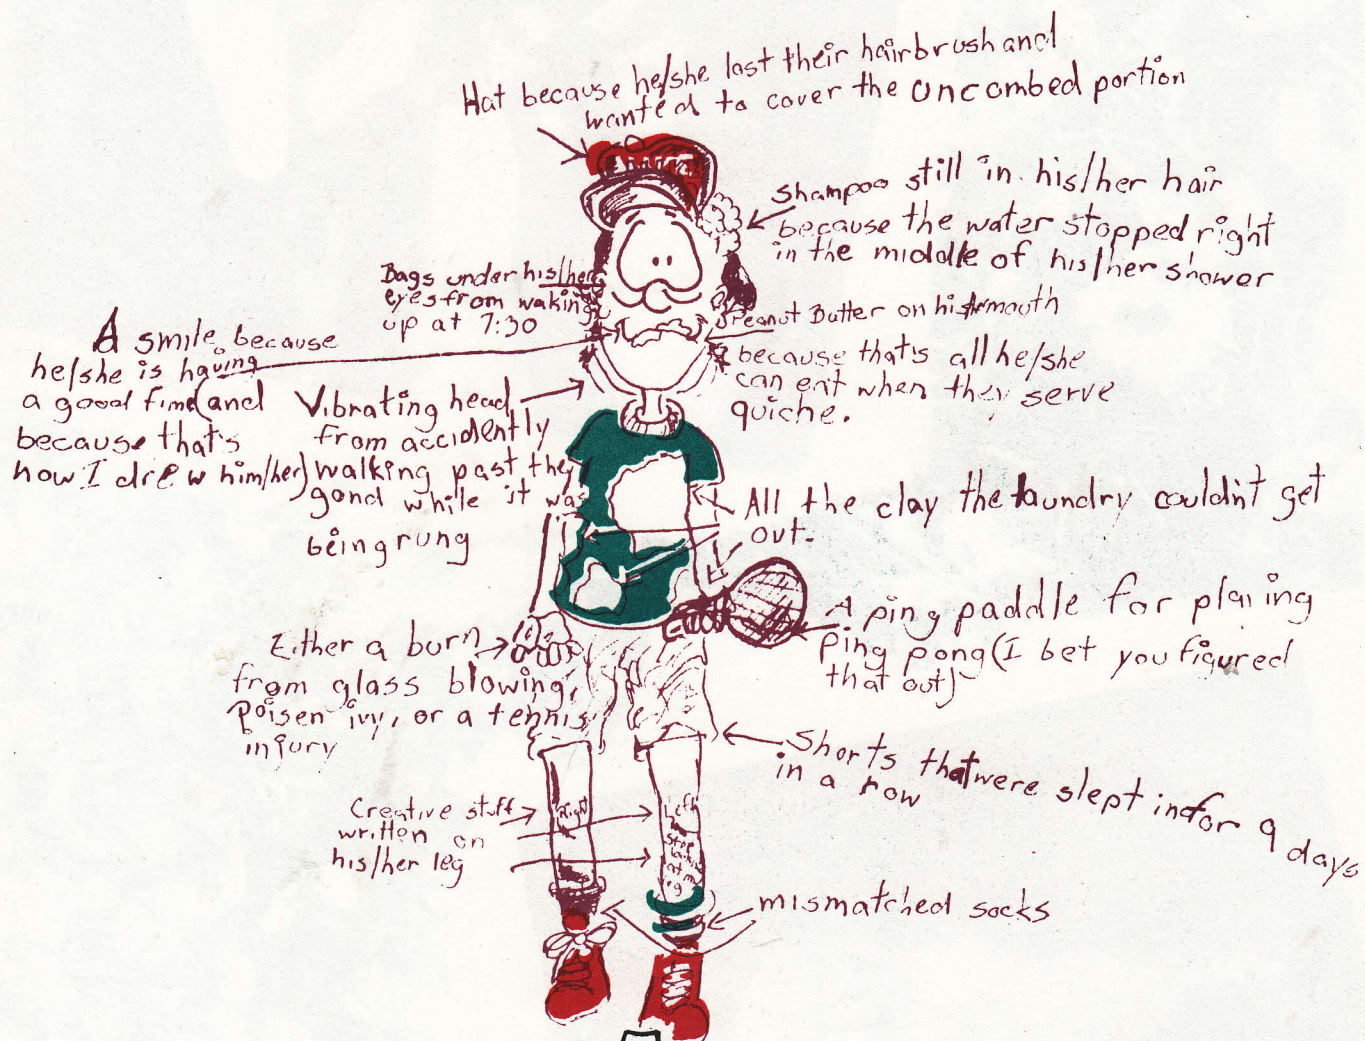 Hat because he/she lost their hairbrush and
wanted to cover the uncombed portion
Shampoo still in his/her hair
because the water stopped right
in the middle of his/her shower
Bags under his/her
eyes from waking
up at 7:30
Peanut Butter on his/her mouth
because that's all he/she
can eat when they serve
quiche.
A smile because
he/she is having
a good time (and
because that's
how I drew him/her)
Vibrating head
from accidently
walking past the
gond while it was
being rung
All the clay the laundry couldn't get
out.
A ping paddle for plaiing
ping pong (I bet you figured
that out)
Either a burn
from glass blowing,
Poisen ivy, or a tennis
injury
Shorts that were slept in for 9 days
in a row
Creative stuff
written on
his/her leg
Right
Left
Stop
looking
at my
leg
mismatched socks